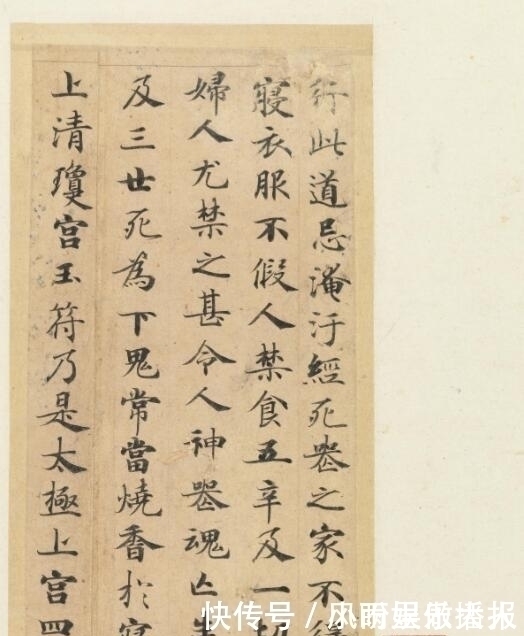 行此道忌淹汙經死喪之家不
寢衣服不假人禁食五辛及一
婦人尤禁之甚令人神喪魂亡
及三世死為下鬼常當燒香於寢
上清瓊宫玉符乃是太極上宫四
快传号 /
播报